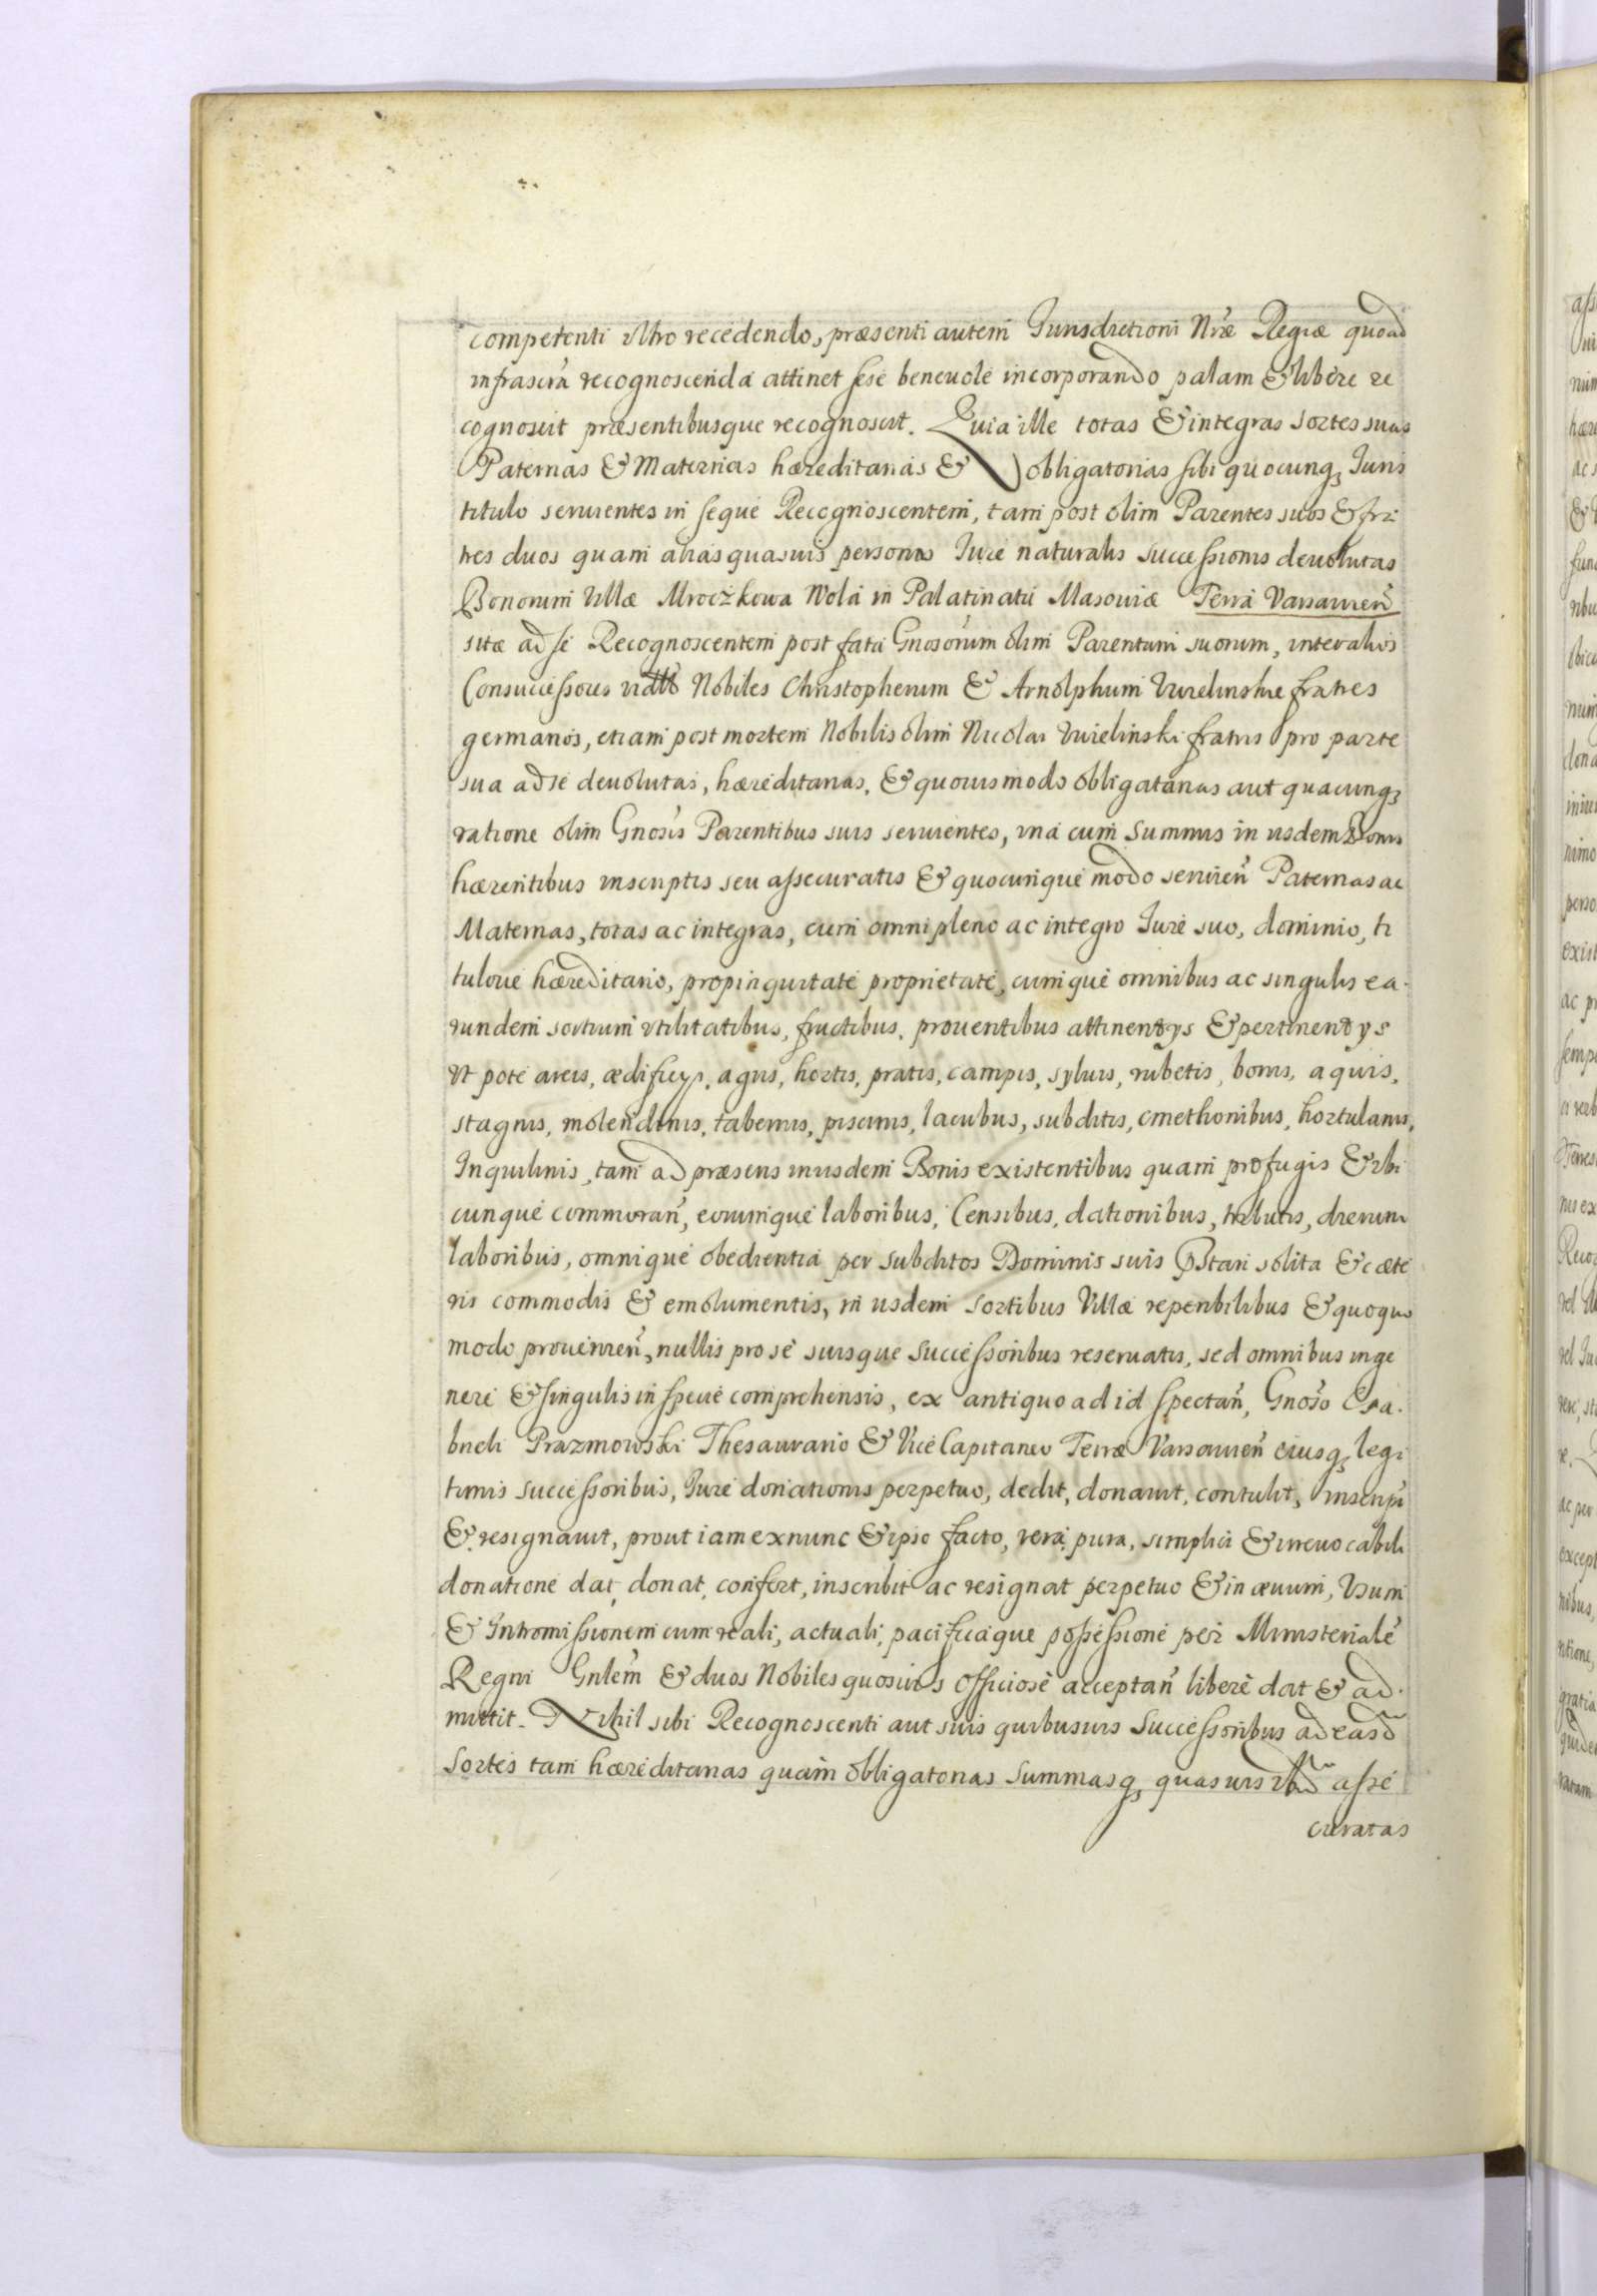 competenti ultro recedendo, præsenti autem Iurisdictioni Nr̃æ Regiæ quoad
infrascrta recognoscenda attinet sese beneuole incorporando palam & libere re
cognoscit præsentibusque recognoscit. Quia ille totas & integras sortes suas
Paternas & Maternas hæreditarias & obligatorias sibi quocunq, Iuris
titulo seruientes in seque Recognoscentem, tam post olim Parentes suos & fra
tres duos quam alias quasuis personas Iure naturalis successionis deuolutas
Bonorum Villæ Mroczkowa Wola in Palatinatu Masouiæ Terra Varsauien̄
sitæ ad se Recognoscentem post fata Gnosorum olim Parentum suorum, inter alios
Consuccessores Nobiles Christopherum & Arnolphum Wielinskie fratres
germanos, etiam post mortem Nobilis olim Nicolai Wielinski fratris pro parte
sua ad se deuolutas, hæreditarias, & quouis modo obligatarias aut quacunq,
ratione olim Gnosis Parentibus suis seruientes, una cum Summis in iisdem Bonis
hærentibus inscriptis seu assecuratis & quocunque modo seruien̄ Paternas ac
Maternas, totas ac integras, cum omni pleno ac integro Iure suo, dominio, ti
tuloue hæreditario, propinquitate proprietate, cumque omnibus ac singulis ea-
rundem sortium utilitatibus, fructibus, prouentibus attinentys & pertinentys
ut pote areis, ædificys, agris, hortis, pratis, campis, syluis, rubetis, boris, aquis,
stagnis, molendinis, tabernis, piscinis, lacubus, subditis, cmethonibus, hortulanis,
Inquilinis, tam ad præsens in iisdem Bonis existentibus quam profugis & ubi
cunque commoran̄, eorumque laboribus, Censibus, dationibus, tributis, dierum
laboribus, omnique obedientia per subditos Dominis suis p̄stari solita & cæte
ris commodis & emolumentis, in iisdem sortibus Villæ reperibilibus & quoquo
modo prouenien̄, nullis pro se suisque Successoribus reseruatis, sed omnibus in ge
nere & singulis in specie comprehensis, ex antiquo ad id spectan̄, Gnoso Ga-
brieli Prazmowski Thesaurario & Vice Capitaneo Terræ Varsauien̄ eiusq, legi
timis successoribus, Iure donationis perpetuo, dedit, donauit, contulit, inscrips̄i
& resignauit, prout iam ex nunc & ipso facto, vera, pura, simplici & irreuocabili
donatione dat, donat, confert, inscribit ac resignat perpetuo & in æuum, Usum
& Intromissionem cum reali, actuali, pacificaque possessione per Ministerialē
Regni Gnlem̄ & duos Nobiles quosuis officiose acceptan̄ libere dat & ad-
mittit. Nihil sibi Recognoscenti aut suis quibusuis Successoribus ad easd̄
Sortes tam hæreditarias quam obligatorias Summasq, quasuis ibid̄ asse
curatas